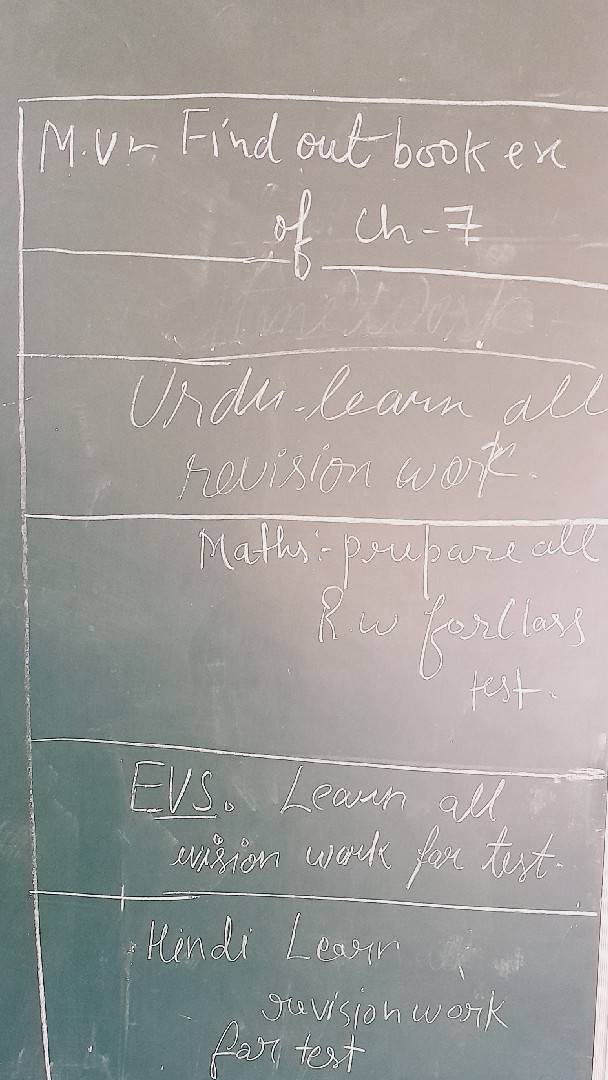 M.V:- Find out book ex
of Ch-7
Urdu-learn all
revision work.
Maths:- prepare all
R.w for Class
test.
EVS. Learn all
evision work for test.
Hindi Learn
revision work
for test